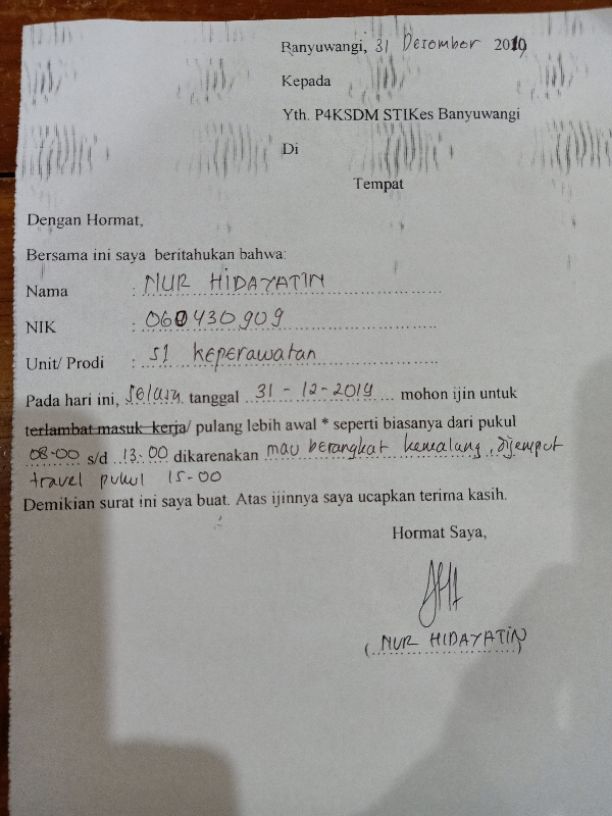 Banyuwangi, 31 Desember 2019
Kepada
Yth. P4KSDM STIKes Banyuwangi
Di
Tempat
Dengan Hormat,
Bersama ini saya beritahukan bahwa:
Nama : NUR HIDAYATIN
NIK : 060430909
Unit/ Prodi : S1 keperawatan
Pada hari ini, Selasa tanggal 31 - 12 - 2019 mohon ijin untuk
terlambat masuk kerja/ pulang lebih awal * seperti biasanya dari pukul
08.00 s/d 13.00 dikarenakan mau berangkat kemalang, dijemput
travel pukul 15.00
Demikian surat ini saya buat. Atas ijinnya saya ucapkan terima kasih.
Hormat Saya,
(NUR HIDAYATIN)